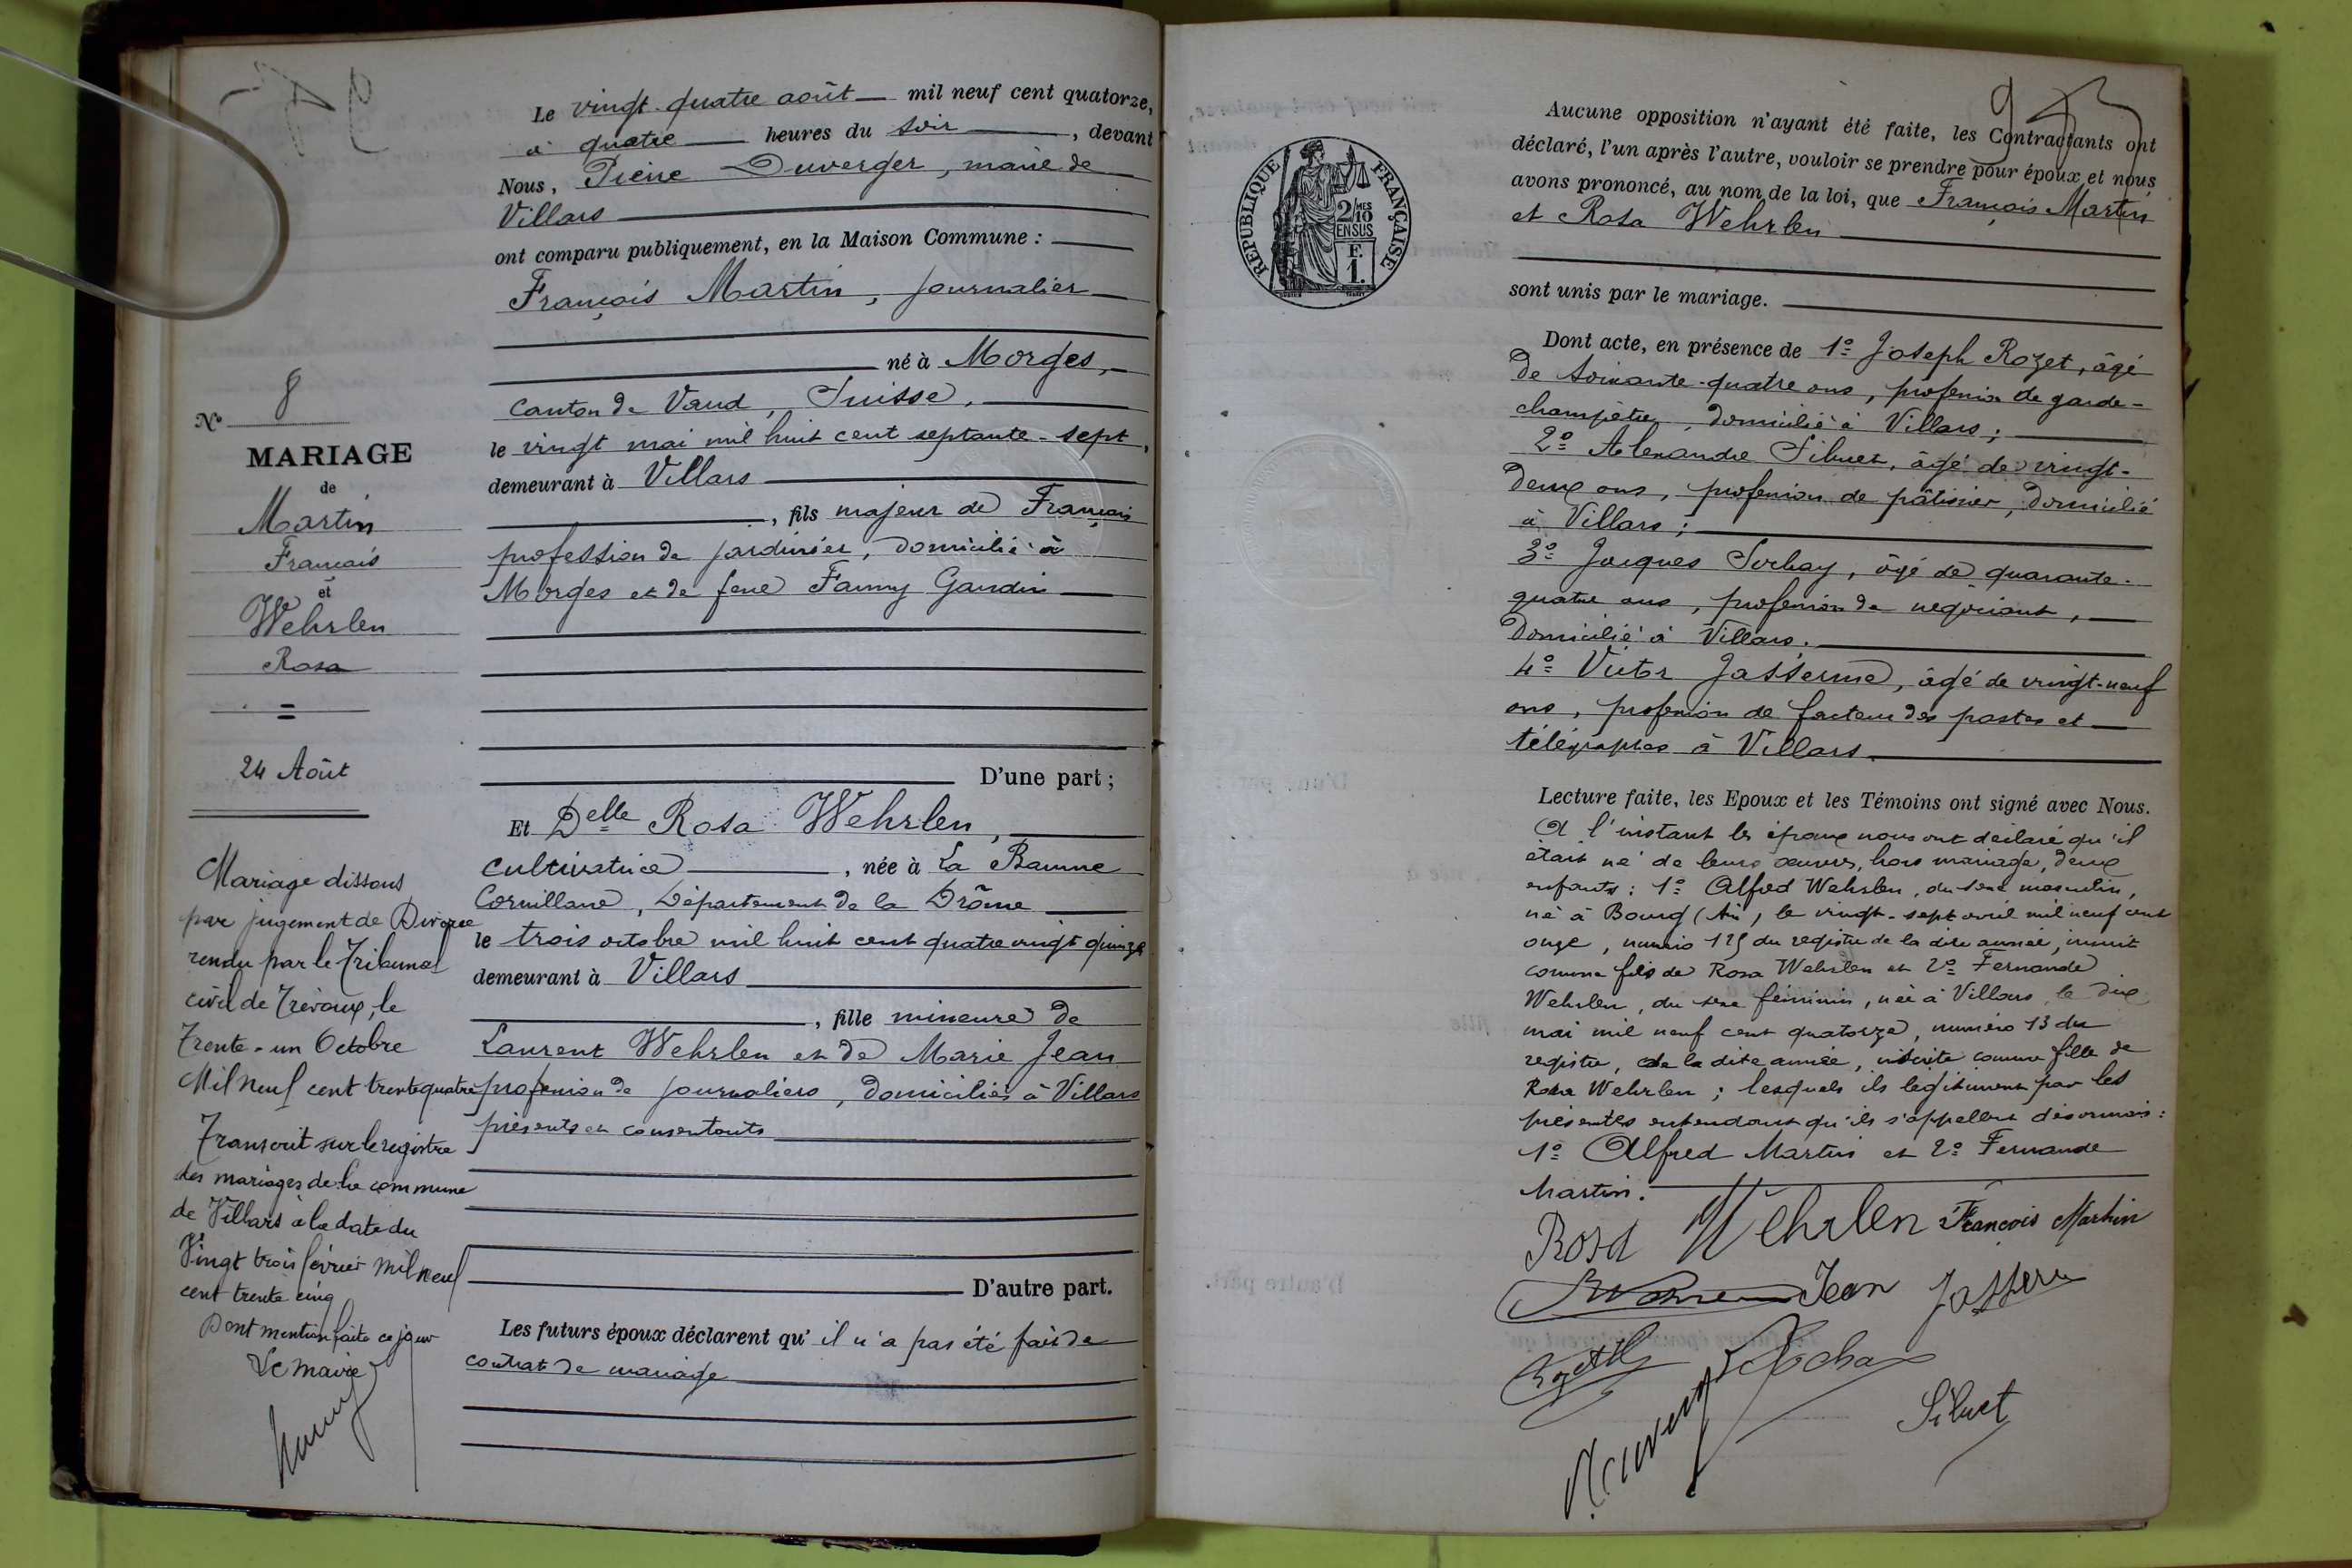 Le vingt-quatre août mil neuf cent quatorze,
à quatre heures du soir, devant
Nous, Pierre Duverger, maire de
Villars
ont comparu publiquement, en la Maison Commune :
François Martin, journalier
né à Morges,
canton de Vaud, Suisse,
le vingt mai mil huit cent septante-sept,
demeurant à Villars
, fils majeur de François
profession de jardinier, domicilié à
Morges et de feue Fanny Gaudin
D'une part ;
Et Delle Rosa Wehrlen,
cultivatrice, née à La Baume
Cornillane, Département de la Drôme
le trois octobre mil huit cent quatre vingt quinze
demeurant à Villars
, fille mineure de
Laurent Wehrlen et de Marie Jean
profession de journaliers, domiciliés à Villars
présents et consentants
D'autre part.
Les futurs époux déclarent qu'il n'a pas été fait de
contrat de mariage
No 8
MARIAGE
de
Martin
François
et
Wehrlen
Rosa
24 Août
Mariage dissous
par jugement de Divorce
rendu par le Tribunal
civil de Trévoux, le
Trente-un Octobre
Mil neuf cent trente quatre
Transcrit sur le registre
des mariages de la commune
de Villars à la date du
Vingt trois février mil neuf
cent trente cinq
Dont mention faite ce jour
Le Maire
RÉPUBLIQUE FRANÇAISE
2/10 MES
EN SUS
F.
1.
Aucune opposition n'ayant été faite, les Contractants ont
déclaré, l'un après l'autre, vouloir se prendre pour époux et nous
avons prononcé, au nom de la loi, que François Martin
et Rosa Wehrlen
sont unis par le mariage.
Dont acte, en présence de 1o Joseph Rozet, âgé
de soixante-quatre ans, profession de garde-
champêtre, domicilié à Villars ;
2o Alexandre Siluet, âgé de vingt-
deux ans, profession de pâtissier, domicilié
à Villars ;
3o Jacques Sochay, âgé de quarante-
quatre ans, profession de négociant,
domicilié à Villars ;
4o Victor Jasserme, âgé de vingt-neuf
ans, profession de facteur des postes et
télégraphes à Villars.
Lecture faite, les Epoux et les Témoins ont signé avec Nous.
A l'instant les époux nous ont déclaré qu'il
était né de leurs œuvres, hors mariage, deux
enfants : 1o Alfred Wehrlen, du sexe masculin,
né à Bourg (Ain), le vingt-sept avril mil neuf cent
onze, numéro 125 du registre de la dite année, inscrit
comme fils de Rosa Wehrlen et 2o Fernande
Wehrlen, du sexe féminin, née à Villars, le dix
mai mil neuf cent quatorze, numéro 13 du
registre, de la dite année, inscrite comme fille de
Rosa Wehrlen ; lesquels ils légitiment par les
présentes entendant qu'ils s'appellent désormais :
1o Alfred Martin et 2o Fernande
Martin.
Rosa Wehrlen François Martin
Jean Jasserme
Siluet
Duverger